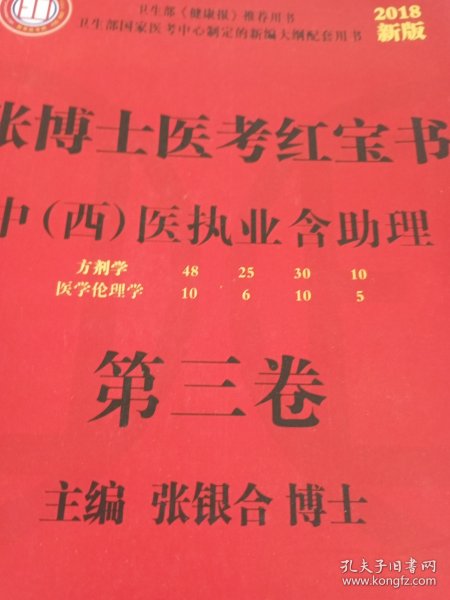 卫生部《健康报》推荐用书
卫生部国家医考中心制定的新编大纲配套用书
2018
新版
张博士医考红宝书
中(西)医执业含助理
方剂学 48 25 30 10
医学伦理学 10 6 10 5
第三卷
主编 张银合 博士
孔夫子旧书网
www.kongfz.com